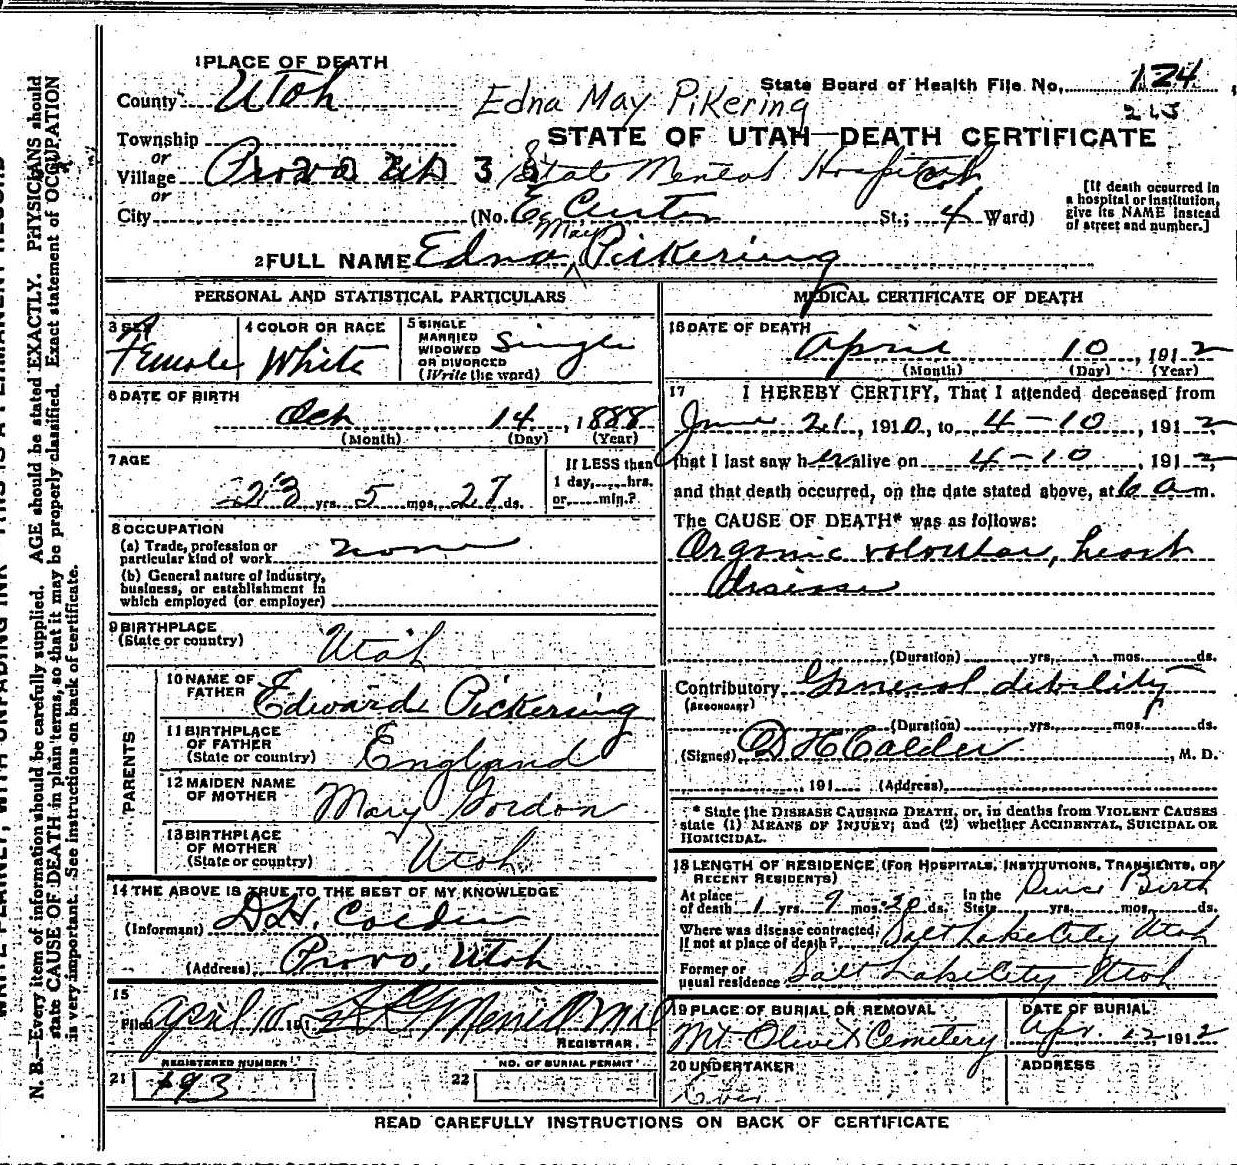 1 PLACE OF DEATH
County Utah
Edna May Pikering
State Board of Health File No. 124
213
STATE OF UTAH—DEATH CERTIFICATE
Township
or
Village Provo
State Mental Hospital
or
City (No. E. Center St.; 4 Ward)
[If death occurred in
a hospital or institution,
give its NAME instead
of street and number.]
2 FULL NAME Edna May Pickering
PERSONAL AND STATISTICAL PARTICULARS
3 SEX Female
4 COLOR OR RACE White
5 SINGLE
MARRIED
WIDOWED
OR DIVORCED
(Write the word) Single
6 DATE OF BIRTH
Oct 14, 1888
(Month) (Day) (Year)
7 AGE
23 yrs. 5 mos. 27 ds.
If LESS than
1 day, hrs.
or min.?
8 OCCUPATION
(a) Trade, profession or
particular kind of work none
(b) General nature of industry,
business, or establishment in
which employed (or employer)
9 BIRTHPLACE
(State or country) Utah
PARENTS
10 NAME OF
FATHER Edward Pickering
11 BIRTHPLACE
OF FATHER
(State or country) England
12 MAIDEN NAME
OF MOTHER Mary Gordon
13 BIRTHPLACE
OF MOTHER
(State or country) Utah
14 THE ABOVE IS TRUE TO THE BEST OF MY KNOWLEDGE
(Informant) D.H. Calder
(Address) Provo, Utah
15
Filed April 10 191
REGISTRAR
REGISTERED NUMBER
21 493
NO. OF BURIAL PERMIT
22
MEDICAL CERTIFICATE OF DEATH
16 DATE OF DEATH
April 10, 1912
(Month) (Day) (Year)
17 I HEREBY CERTIFY, That I attended deceased from
June 21, 1910, to 4-10, 1912
that I last saw her alive on 4-10, 1912
and that death occurred, on the date stated above, at 6 a m.
The CAUSE OF DEATH* was as follows:
Organic valvular heart
disease
(Duration) yrs. mos. ds.
Contributory General debility
(SECONDARY)
(Duration) yrs. mos. ds.
(Signed) D H Calder, M. D.
191 (Address)
* State the DISEASE CAUSING DEATH, or, in deaths from VIOLENT CAUSES
state (1) MEANS OF INJURY; and (2) whether ACCIDENTAL, SUICIDAL OR
HOMICIDAL.
18 LENGTH OF RESIDENCE (FOR HOSPITALS, INSTITUTIONS, TRANSIENTS, OR
RECENT RESIDENTS)
At place
of death 1 yrs. 9 mos. 20 ds.
In the
State Since Birth yrs. mos. ds.
Where was disease contracted,
If not at place of death? Salt Lake City Utah
Former or
usual residence Salt Lake City Utah
19 PLACE OF BURIAL OR REMOVAL
Mt. Olivet Cemetery
DATE OF BURIAL
Apr. 12 1912
20 UNDERTAKER
ADDRESS
READ CAREFULLY INSTRUCTIONS ON BACK OF CERTIFICATE
N. B.—Every item of information should be carefully supplied. AGE should be stated EXACTLY. PHYSICIANS should
state CAUSE OF DEATH in plain terms, so that it may be properly classified. Exact statement of OCCUPATION
is very important. See instructions on back of certificate.